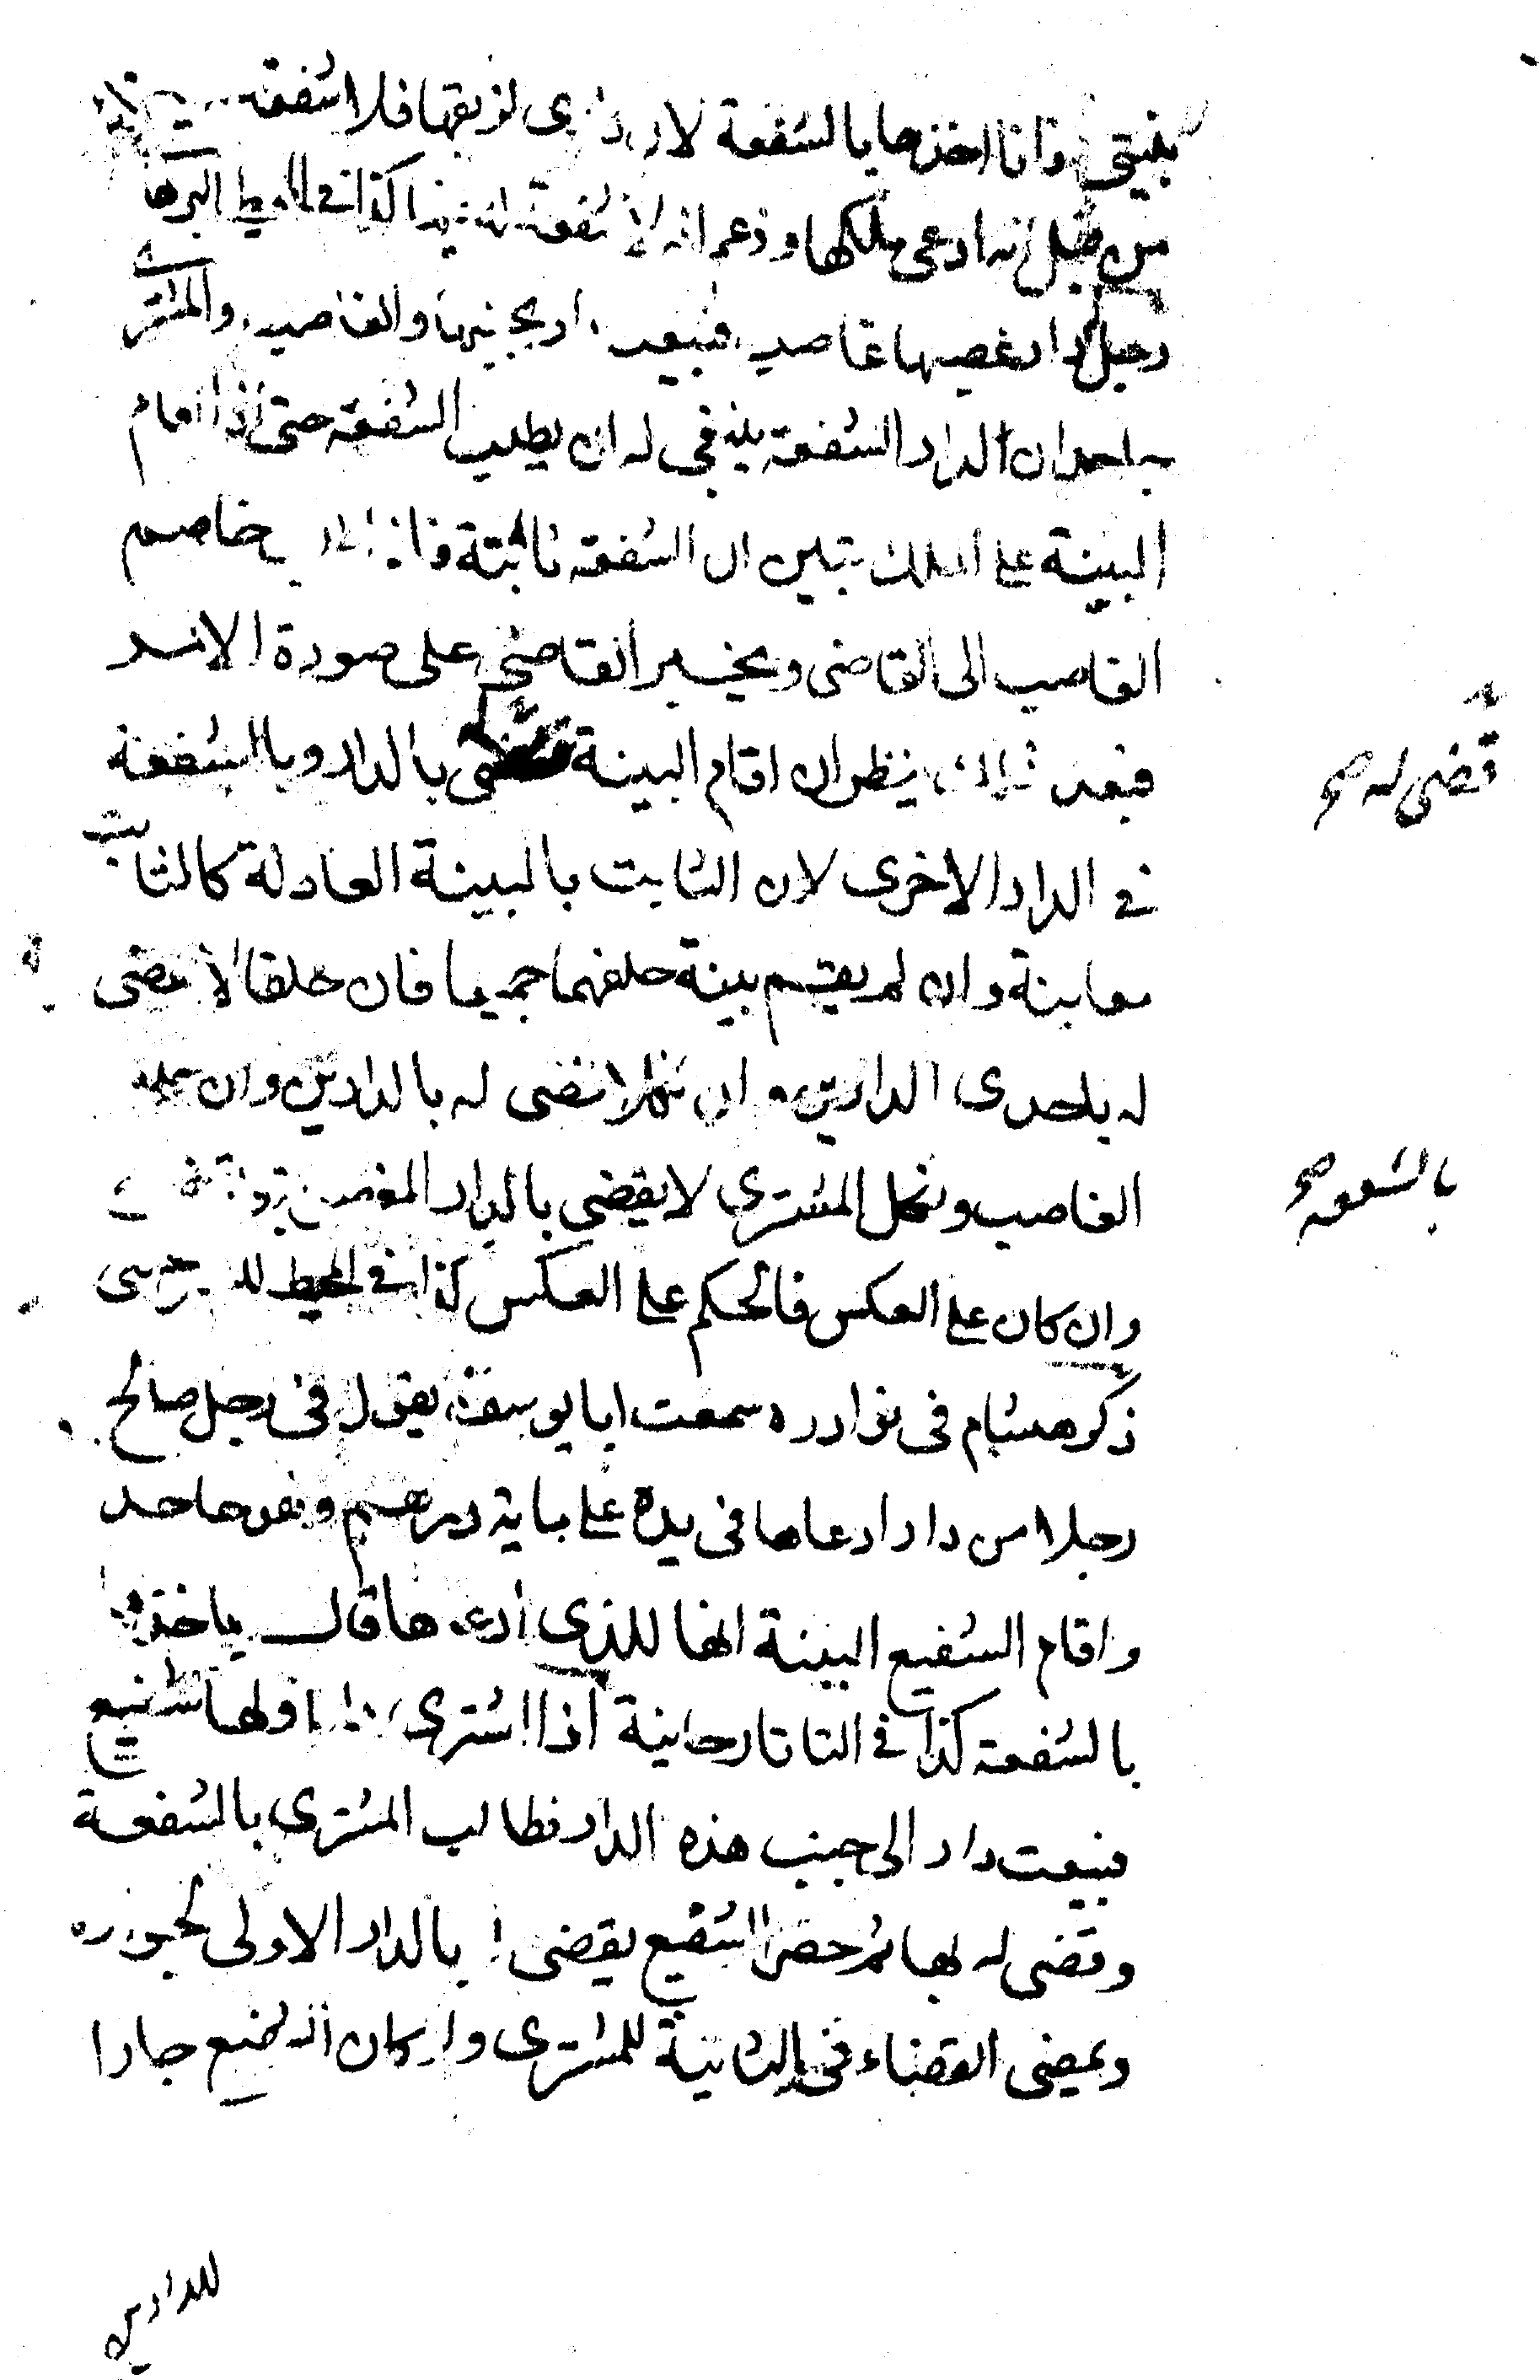 بينتي وانا اخذها بالشفعة لان داري لزيقها فلا شفعة
من قبل انه ادعى ملكها وزعم انه لا شفعة له فيها كذا في المحيط البرهاني
رجل له دار غصبها غاصب فبيعت دار بجنبها والغاصب والمشتري
جاحدان الدار الشفعة ينبغي له ان يطلب الشفعة حتى اذا اقام
البينة على الملك تبين ان الشفعة ثابتة يخاصم
الغاصب الى القاضي ويخبر القاضي على صورة الامر
فبعد ذلك ينظر ان اقام البينة بالدار وبالشفعة
قضى له صح
في الدار الاخرى لان الثابت بالبينة العادلة كالثابت
معاينة وان لم يقم بينة حلفهما جميعا فان حلفا لا يقضى
له باحدى الدارين وان نكلا نقضى له بالدارين وان حلف
الغاصب ونكل المشتري لا يقضى بالدار المغصوبة ونقضى
بالشفعة صح
وان كان على العكس فالحكم على العكس كذا في المحيط للسرخسي
ذكر هشام في نوادره سمعت ابا يوسف يقول في رجل صالح
رجلا من دار ادعاها في يده على ماية درهم وهو جاحد
واقام الشفيع البينة انها للذي ادعاها قال ياخذها
بالشفعة كذا في التاتارخانية اذا اشترى دارا ولها شفيع
فبيعت دار الى جنب هذه الدار فطالب المشتري بالشفعة
وقضى له بها ثم حضر الشفيع يقضى بالدار الاولى لجواره
ويمضى القضاء في الثانية للمشتري وان كان الشفيع جارا
للدارين